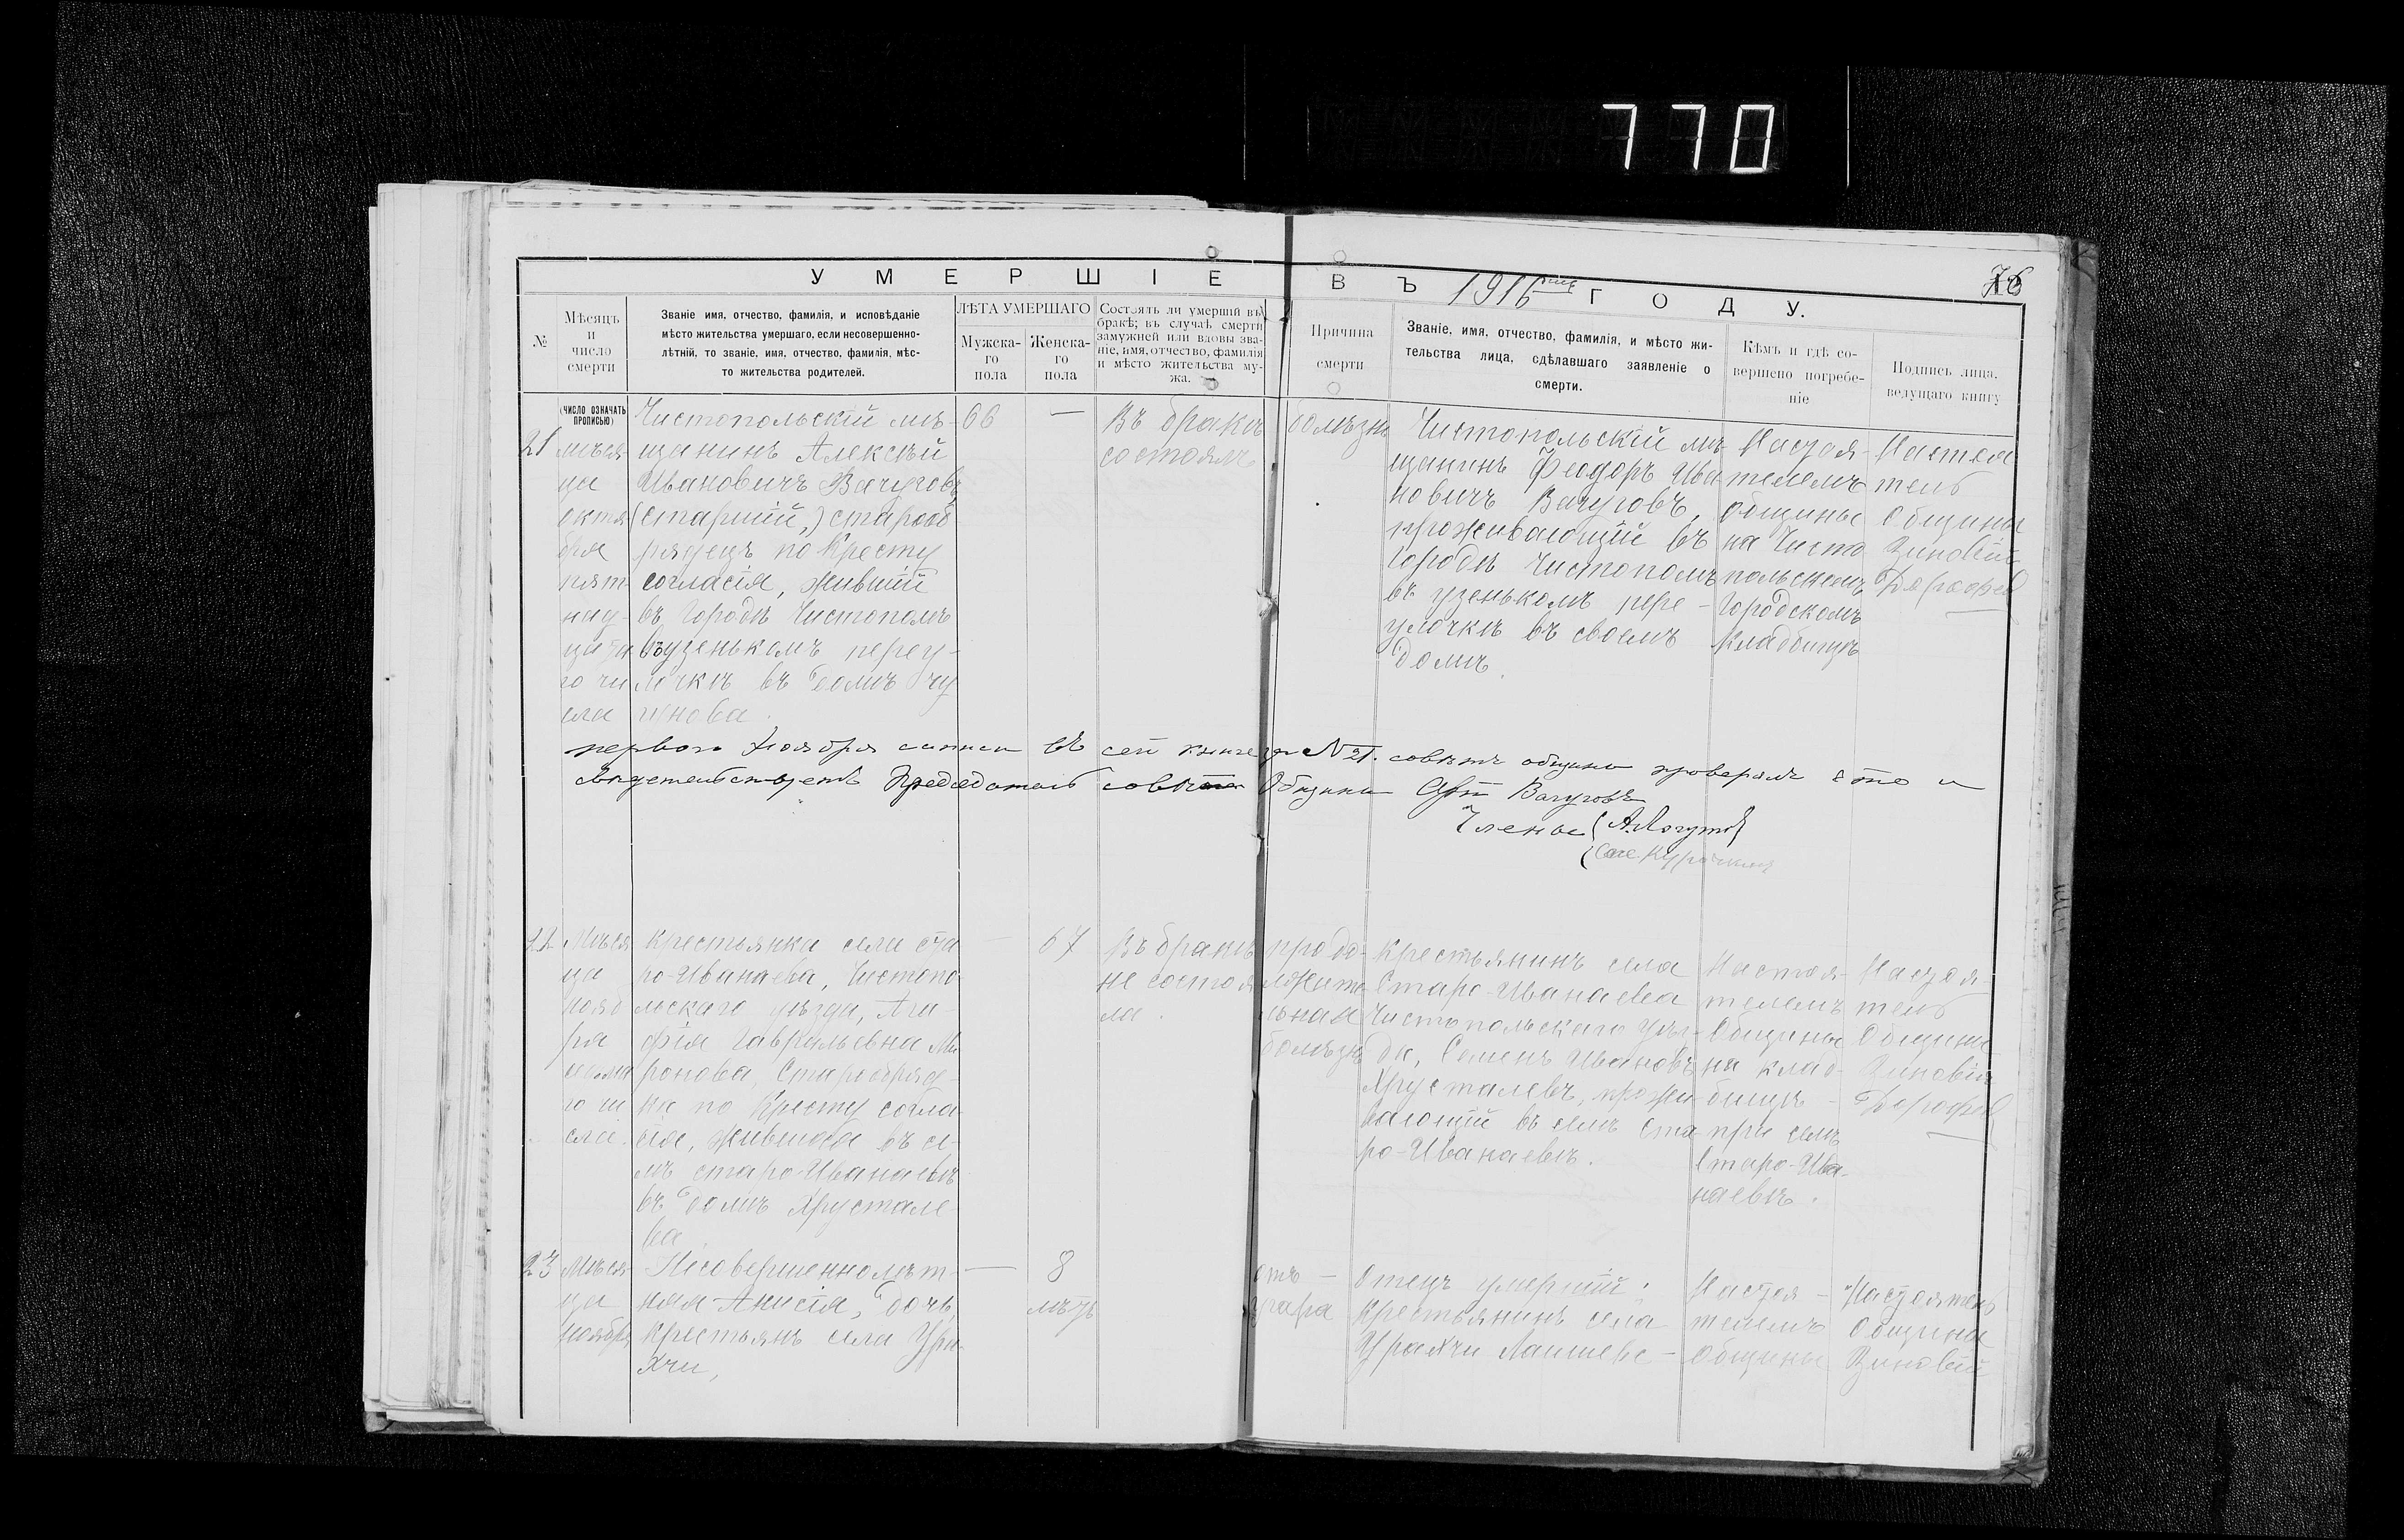 770
76
УМЕРШІЕ ВЪ 1916 ГОДУ.
№
Мѣсяцъ
и
число
смерти
Званіе имя, отчество, фамилія, и исповѣданіе
мѣсто жительства умершаго, если несовершенно-
лѣтній, то званіе, имя, отчество, фамилія, мѣс-
то жительства родителей.
ЛѢТА УМЕРШАГО
Мужска-
го
пола
Женска-
го
пола
Состоялъ ли умершій въ
бракѣ; въ случаѣ смерти
замужней или вдовы зва-
ніе, имя, отчество, фамилія
и мѣсто жительства му-
жа.
Причина
смерти
Званіе, имя, отчество, фамилія, и мѣсто жи-
тельства лица, сдѣлавшаго заявленіе о
смерти.
Кѣмъ и гдѣ со-
вершено погребе-
ніе
Подпись лица,
ведущаго книгу
(ЧИСЛО ОЗНАЧАТЬ
ПРОПИСЬЮ)
21
мѣся-
ца
октя
бря
пят
над-
цата
го чи
сла
Чистопольскій мѣ-
щанинъ Алексѣй
Ивановичъ Вачуговъ
(старшій,) старооб
рядецъ по Кресту
согласія, жившій
въ городѣ Чистополѣ
въ узенькомъ переу-
лочкѣ въ домѣ Чу
гунова.
66
—
Въ бракѣ
состоялъ
болѣзнь
Чистопольскій мѣ-
щанинъ Феодоръ Ива
новичъ Вачуговъ,
проживающій въ
городѣ Чистополѣ
въ узенькомъ пере-
улочкѣ въ своемъ
домѣ.
Настоя-
телемъ
Общины
на Чисто
польскомъ
Городскомъ
Кладбищѣ
Настоя
тель
Общины
Зиновій
Дорофеев
перваго Ноября записи въ сей книге за № 21. совѣтъ общины проверялъ что и
свидетельствуетъ Председатель совѣта Общины Вачуговъ
Члены
22
Мѣся
ца
нояб
ря
седма
го чи
сла.
крестьянка села Ста
ро-Иванаева, Чистопо-
льскаго уѣзда, Ага-
фія Гаврильевна Ми
ронова, Старообряд-
ка по Кресту согла-
сія, жившая въ се-
лѣ старо-Иванаевѣ
въ домѣ Хрустале
ва
—
67
Въ бракѣ
не состоя
ла.
продо-
лжите
льная
болѣзнь
крестьянинъ села
Старо-Иванаева
Чистопольскаго уѣз-
да, Семенъ Ивановъ
Хрусталевъ, прожи-
вающій въ селѣ Ста-
ро-Иванаевѣ.
Настоя-
телемъ
Общины
на клад-
бищѣ
при селѣ
Старо-Ива-
наевѣ.
Настоя-
тель
Общины
Зиновій
Дорофеев
23
Мѣся-
ца
ноября
Несовершеннолѣт-
няя Анисія, дочь,
крестьянъ села Ура-
хчи,
—
8
лѣтъ
отъ
угара
Отецъ умершій:
Крестьянинъ села
Урахчи Лаишевс-
Настоя-
телемъ
Общины
Настоятель
Общины
Зиновій